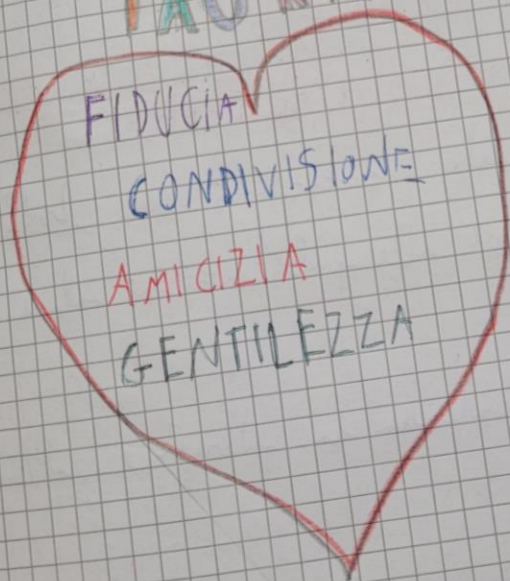 FIDUCIA
CONDIVISIONE
AMICIZIA
GENTILEZZA